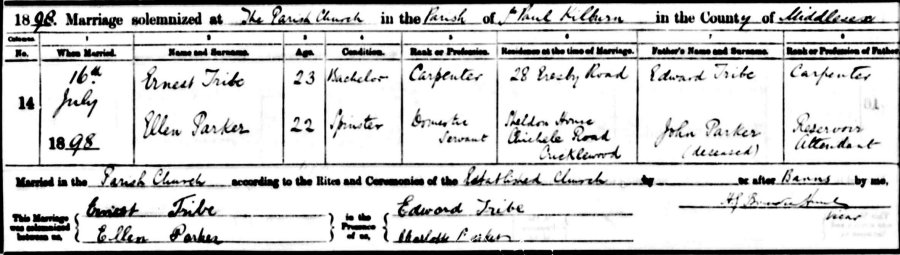 1898. Marriage solemnized at The Parish Church in the Parish of St Paul Kilburn in the County of Middlesex
Columns. 1 2 3 4 5 6 7 8
No. When Married. Name and Surname. Age. Condition. Rank or Profession. Residence at the time of Marriage. Father's Name and Surname. Rank or Profession of Father.
14
16th
July
1898
Ernest Tribe 23 Bachelor Carpenter 28 Eresby Road Edward Tribe Carpenter
Ellen Parker 22 Spinster Domestic
Servant
Sheldon House
Chichele Road
Cricklewood
John Parker
(deceased)
Reservoir
Attendant
Married in the Parish Church according to the Rites and Ceremonies of the Established Church by or after Banns by me,
This Marriage
was solemnized
between us,
Ernest Tribe
Ellen Parker
in the
Presence
of us,
Edward Tribe
Charlotte Parker
Vicar